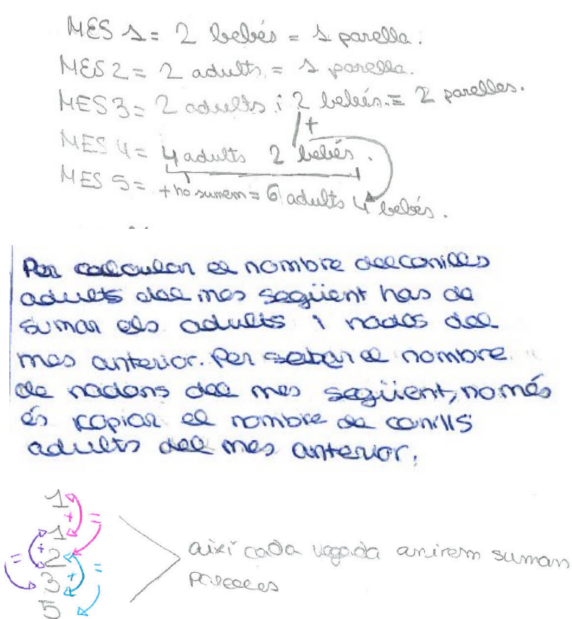 MES 1 = 2 bebés = 1 parella.
MES 2 = 2 adults = 1 parella.
MES 3 = 2 adults i 2 bebés. = 2 parelles.
+
MES 4 = 4 adults 2 bebés.
MES 5 = + ho sumem = 6 adults 4 bebés.
Per calcular el nombre de conills
adults del mes següent has de
sumar els adults i nadós del
mes anterior. Per saber el nombre
de nadons del mes següent, només
és copiar el nombre de conills
adults del mes anterior.
1
+ =
1
= + 2
3 + =
5
així cada vegada anirem suman
parelles